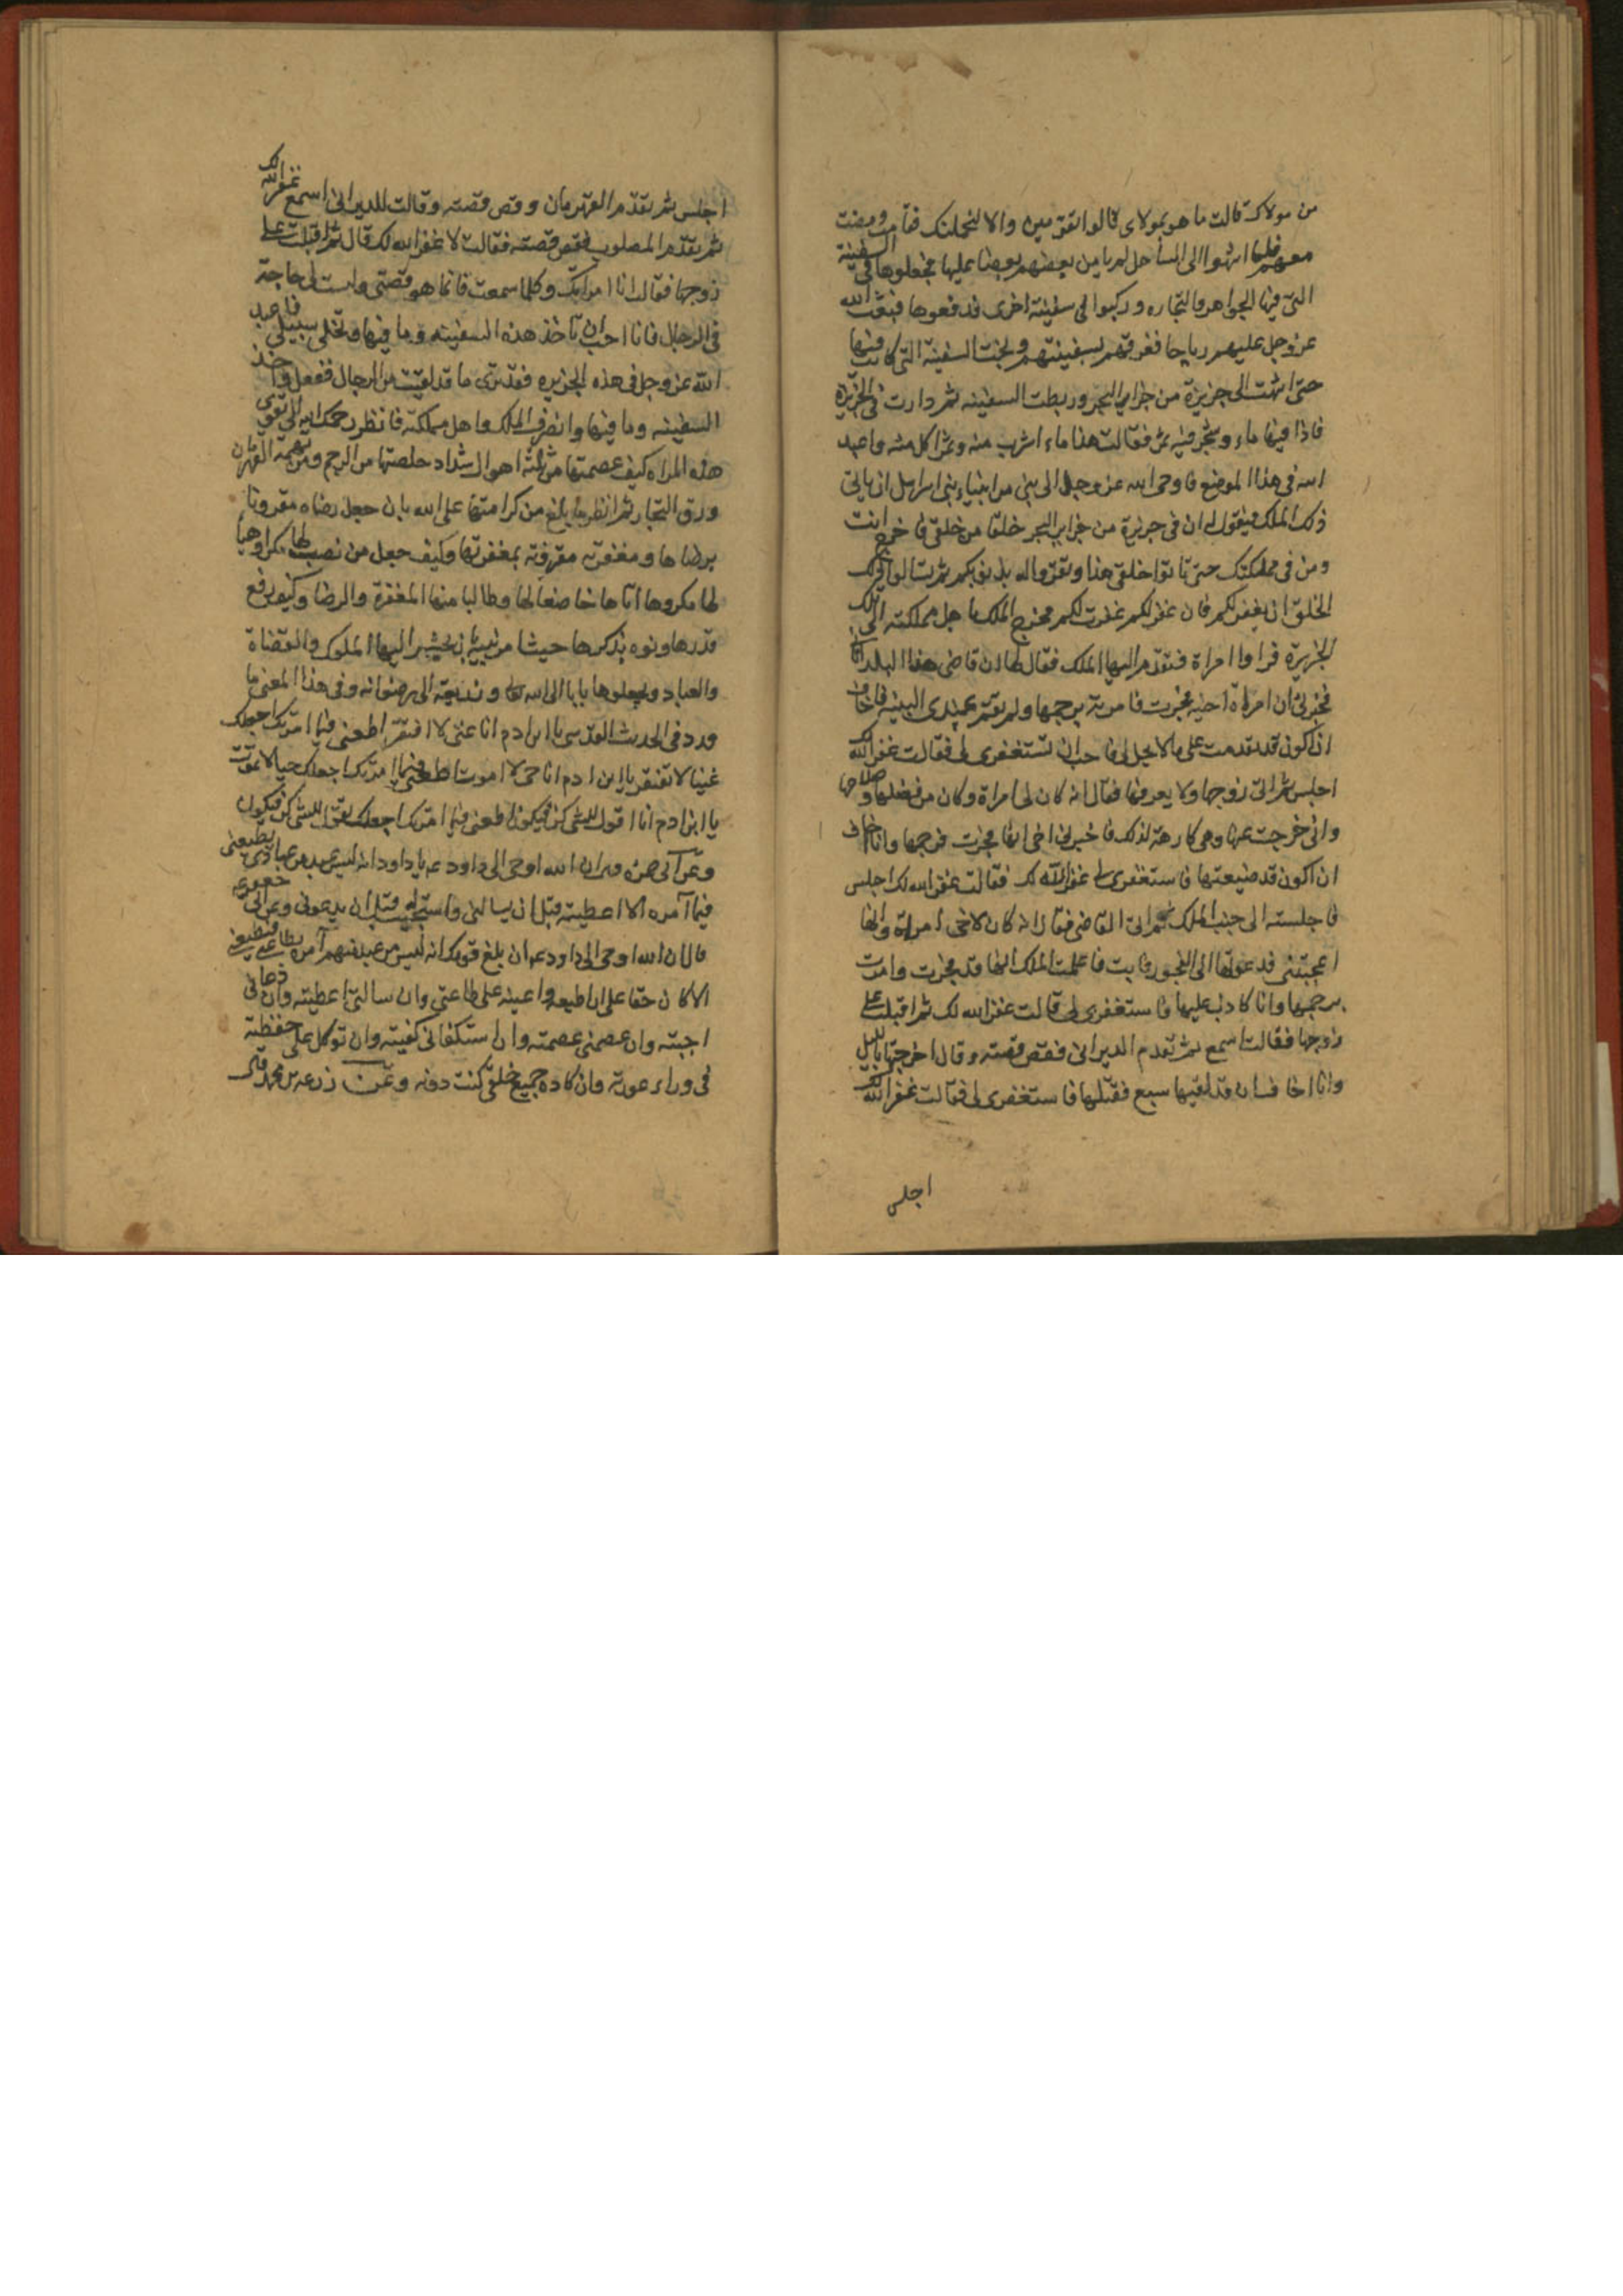 من مولاك قالت ما هو بمولاى قالوا لتقومين والا لنحملنك فقامت ومضت
معهم فلما انتهوا الى الساحل لم يامن بعضهم بعضا عليها فجعلوها فى السفينة
التى فيها الجواهر والتجاره وركبوا فى سفينة اخرى فدفعوها فبعث الله
عز وجل عليهم رياحا فغرقتهم بسفينتهم ونجت السفينة التى كانت فيها
حتى انتهت الى جزيرة من جزاير البحر وربطت السفينه ثم دارت فى الجزيرة
فاذا فيها ماء وشجر فيه ثمر فقالت هذا ماء اشرب منه وثمر اكل منه واعبد
الله فى هذا الموضع فاوحى الله عز وجل الى نبى من انبياء بنى اسرايل ان ياتى
ذلك الملك فيقول له ان فى جزيرة من جزاير البحر خلقا من خلقى فاخرج انت
ومن فى مملكتك حتى تاتوا خلقى هذا وتقرواله بذنوبكم ثم تسالوا ذلك
الخلق ان يغفر لكم فان غفر لكم غفرت لكم فخرج الملك باهل مملكته الى تلك
الجزيرة فراوا امراة فتقدم اليها الملك فقال لها ان قاضى هذا البلد اتانى
فخبرنى ان امراة اخيه فجرت فامرته برجمها ولم تقم عندى البينه فاخاف
ان اكون قد تقدمت على ما لا يحل لى فاحب ان تستغفرى لى فقالت غفر الله لك
اجلس ثم اتى زوجها ولا يعرفها فقال انه كان لى امراة وكان من فضلها وصلاحها
وانى خرجت عنها وهى كارهة لذلك فاخبرنى اخى انها فجرت فرجمها وانا اخاف
ان اكون قد ضيعتها فاستغفرى لى غفر الله لك فقالت غفر الله لك اجلس
فاجلسته الى جنب الملك ثم اتى القاضى فقال انه كان لاخى امراة وانها
اعجبتنى فدعوتها الى الفجور فابت فاعلمت الملك انها قد فجرت وامرت
برجمها وانا كاذب عليها فاستغفرى لى قالت غفر الله لك ثم اقبلت على
زوجها فقالت اسمع ثم تقدم الديرانى فقص قصته وقال اخرجتها بالليل
وانا اخاف ان قد لقيها سبع فقتلها فاستغفرى لى فقالت غفر الله لك
اجلس
اجلس ثم تقدم القهرمان وقص قصته وقالت للديرانى اسمع غفر الله لك
ثم تقدم المصلوب فقص قصته فقالت لا غفر الله لك قال ثم اقبلت على
زوجها فقالت انا امراتك وكلما سمعت فانما هو قصتى وليست لى حاجة
فى الرجال فانا احب ان تاخذ هذه السفينه وما فيها وتخلى سبيلى فاعبد
الله عز وجل فى هذه الجزيره فقد ترى ما قد لقيت من الرجال ففعل واخذ
السفينه وما فيها وانصرف الملك واهل مملكته فانظر رحمك الله الى تقوى
هذه المراه كيف عصمتها من ثلثة اهوال شداد خلصتها من الرجم ومن تهمة القهرمان
ورق التجار ثم انظر ما بلغ من كرامتها على الله بان جعل رضاه مقرونا
برضاها ومغفرته مقرونة بمغفرتها وكيف جعل من نصب لها مكرا وهيأ
لها مكروها اتاها خاضعا لها وطالبا منها المغفرة والرضا وكيف رفع
قدرها ونوه بذكرها حيث امر نبيه بان يحشر اليها الملوك والقضاة
والعباد ويجعلوها بابا الى الله تعالى وذريعة الى رضوانه وفى هذا المعنى ما
ورد فى الحديث القدسى يا ابن ادم انا غنى لا افتقر اطعنى فيما امرتك اجعلك
غنيا لا تفتقر يا ابن ادم انا حى لا اموت اطعنى فيما امرتك اجعلك حيا لا تموت
يا ابن ادم انا اقول للشى كن فيكون اطعنى فيما امرتك اجعلك تقول للشى كن فيكون
وعن ابى حمزه قال ان الله اوحى الى داود ع م يا داود انه ليس عبد من عبادى يطيعنى
فيما آمره الا اعطيته قبل ان يسالنى واستجيب له قبل ان يدعونى وعن ابى جعفر ع م
قال ان الله اوحى الى داود ع م ان بلغ قومك انه ليس من عبد منهم آمره بطاعتى فيطيعنى
الا كان حقا على ان اطيعه واعينه على طاعتى وان سالنى اعطيته وان دعانى
اجبته وان عصمنى عصمته وان استكفانى كفيته وان توكل على حفظته
فى وراء عورته وان كاده جميع خلقى كنت دونه وعن زرعه بن محمد قال